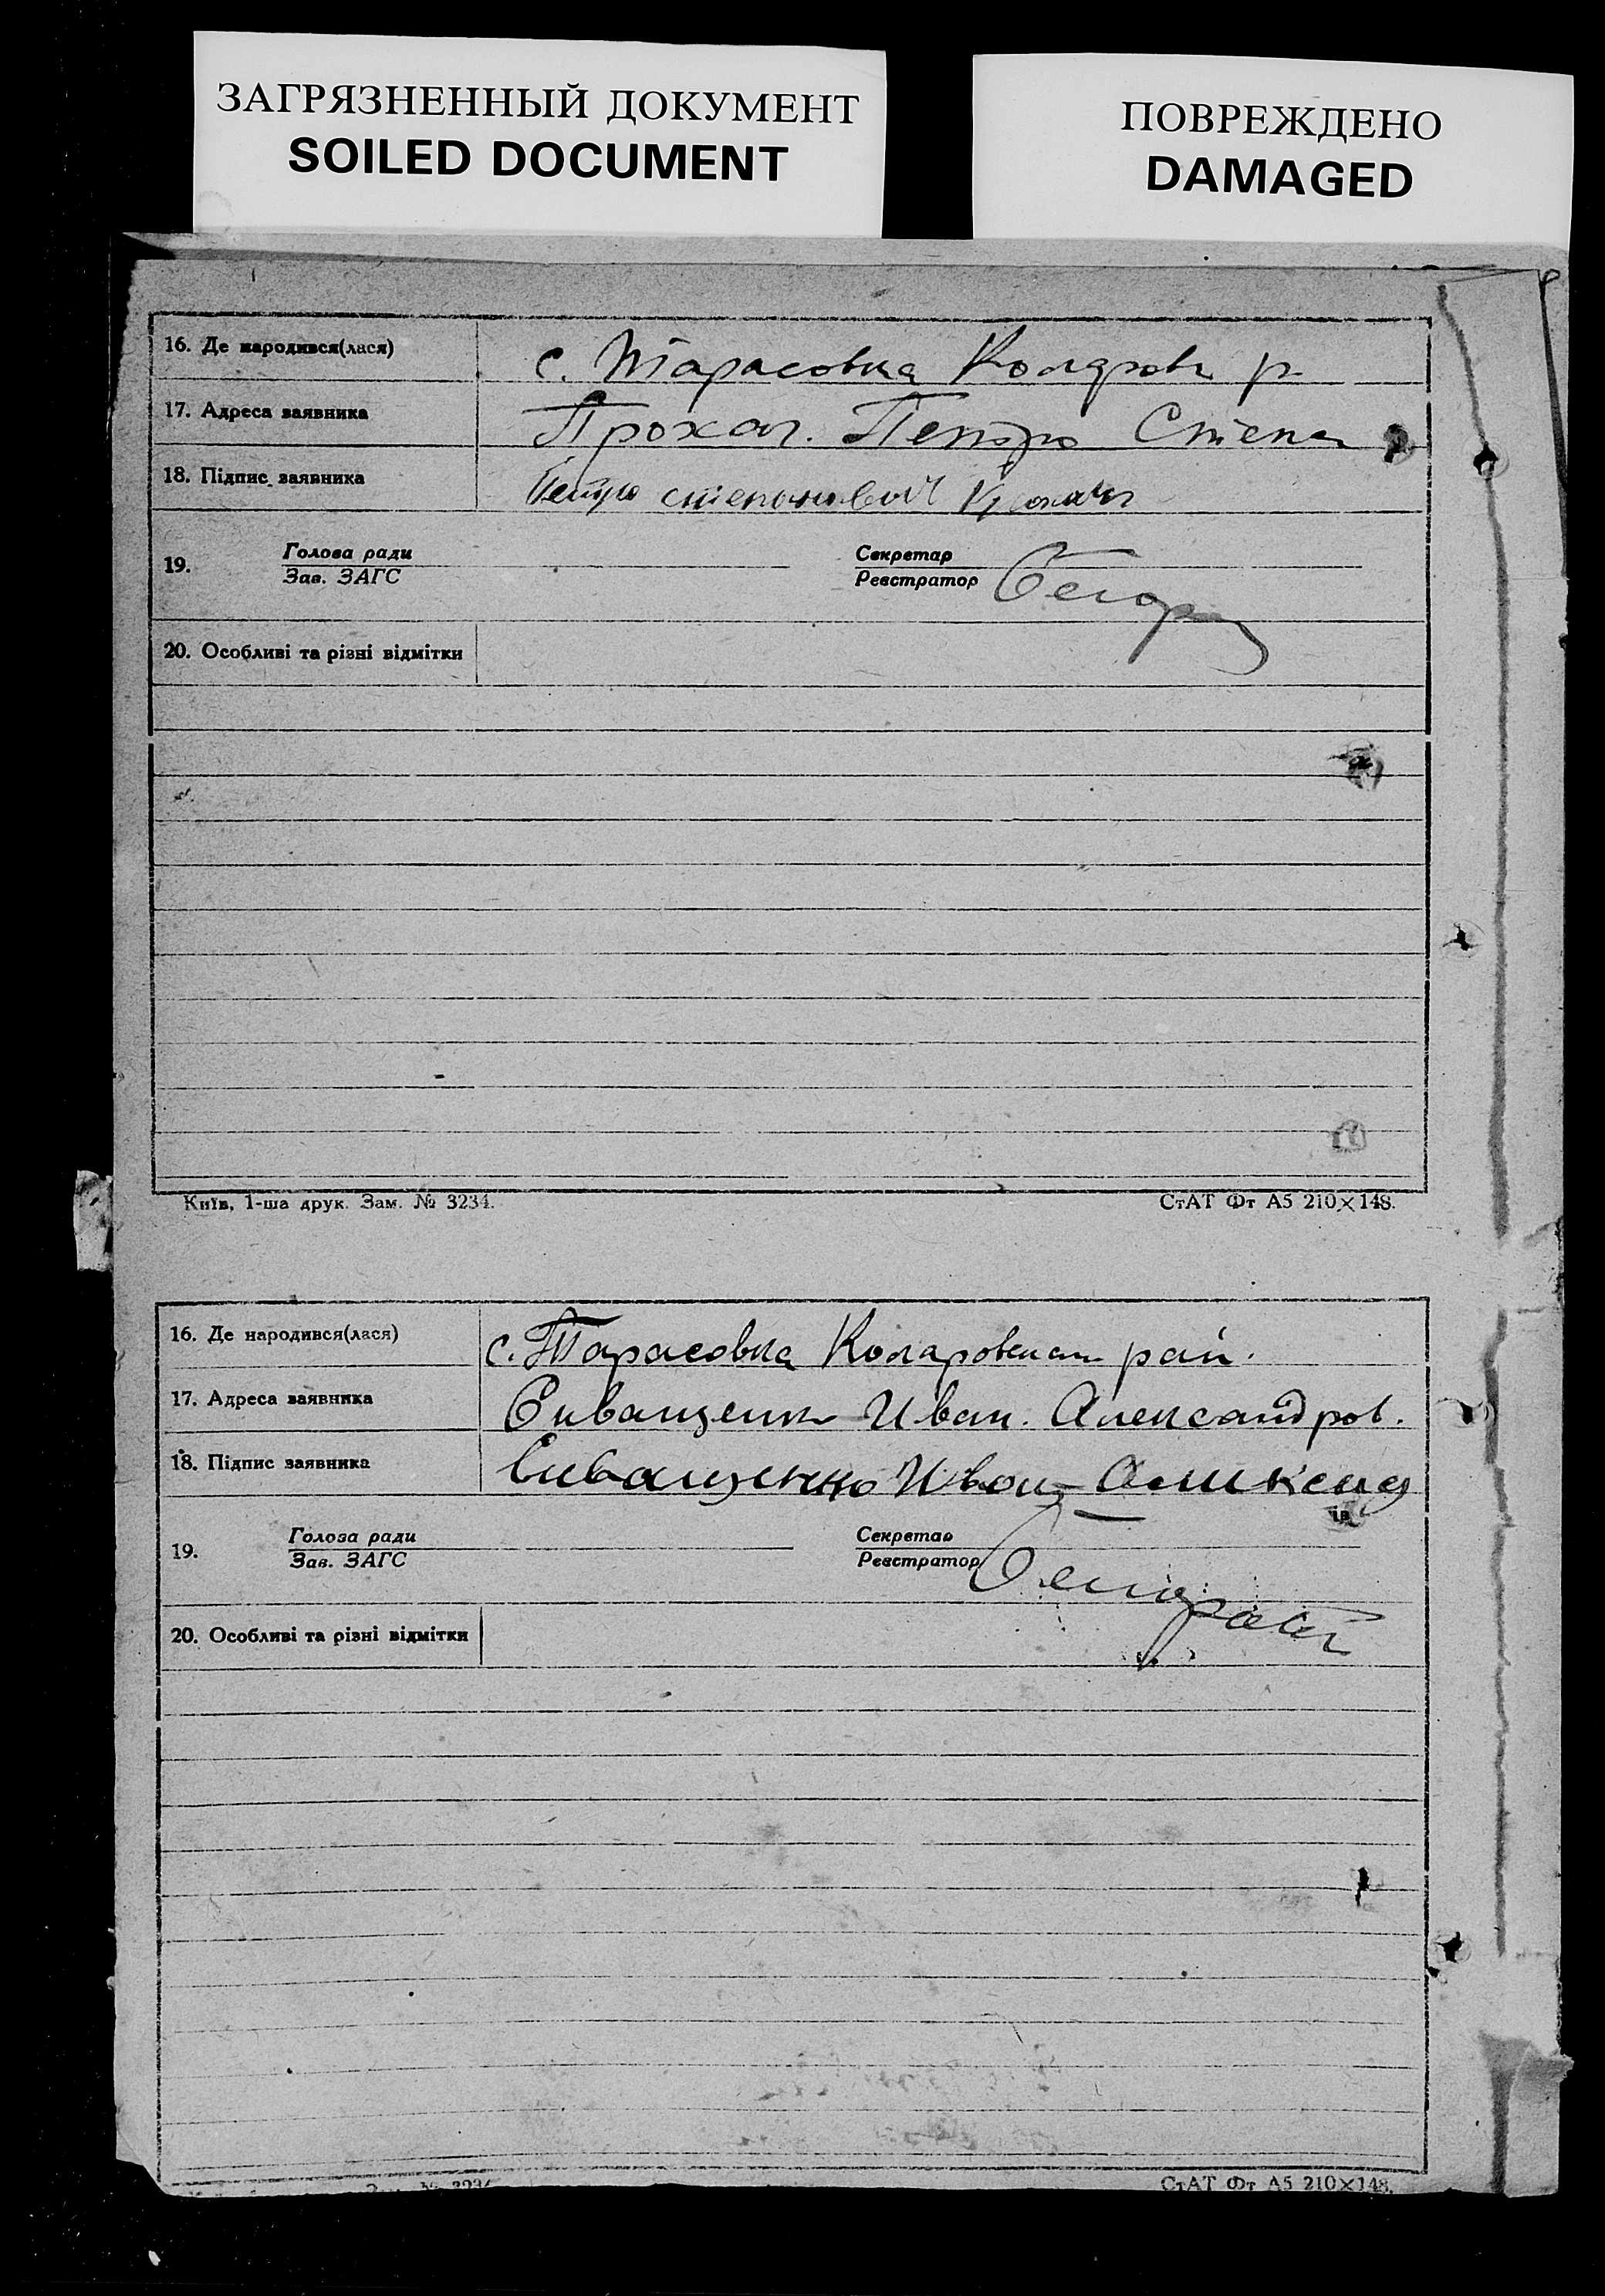 ЗАГРЯЗНЕННЫЙ ДОКУМЕНТ
SOILED DOCUMENT
ПОВРЕЖДЕНО
DAMAGED
16. Де народився(лася) с. Тарасовка Коларовк р.
17. Адреса заявника Прохач. Петро Степан
18. Підпис заявника Петро степанович
19. Голова ради
Зав. ЗАГС
Секретар
Реєстратор
20. Особливі та різні відмітки
Київ, 1-ша друк. Зам. № 3234.
СтАТ Фт А5 210×148.
16. Де народився(лася) с. Тарасовка Коларовск рай.
17. Адреса заявника Сиващенко Иван. Александров.
18. Підпис заявника Сиващенко Иван
19. Голова ради
Зав. ЗАГС
Секретар
Реєстратор
20. Особливі та різні відмітки
СтАТ Фт А5 210×148.